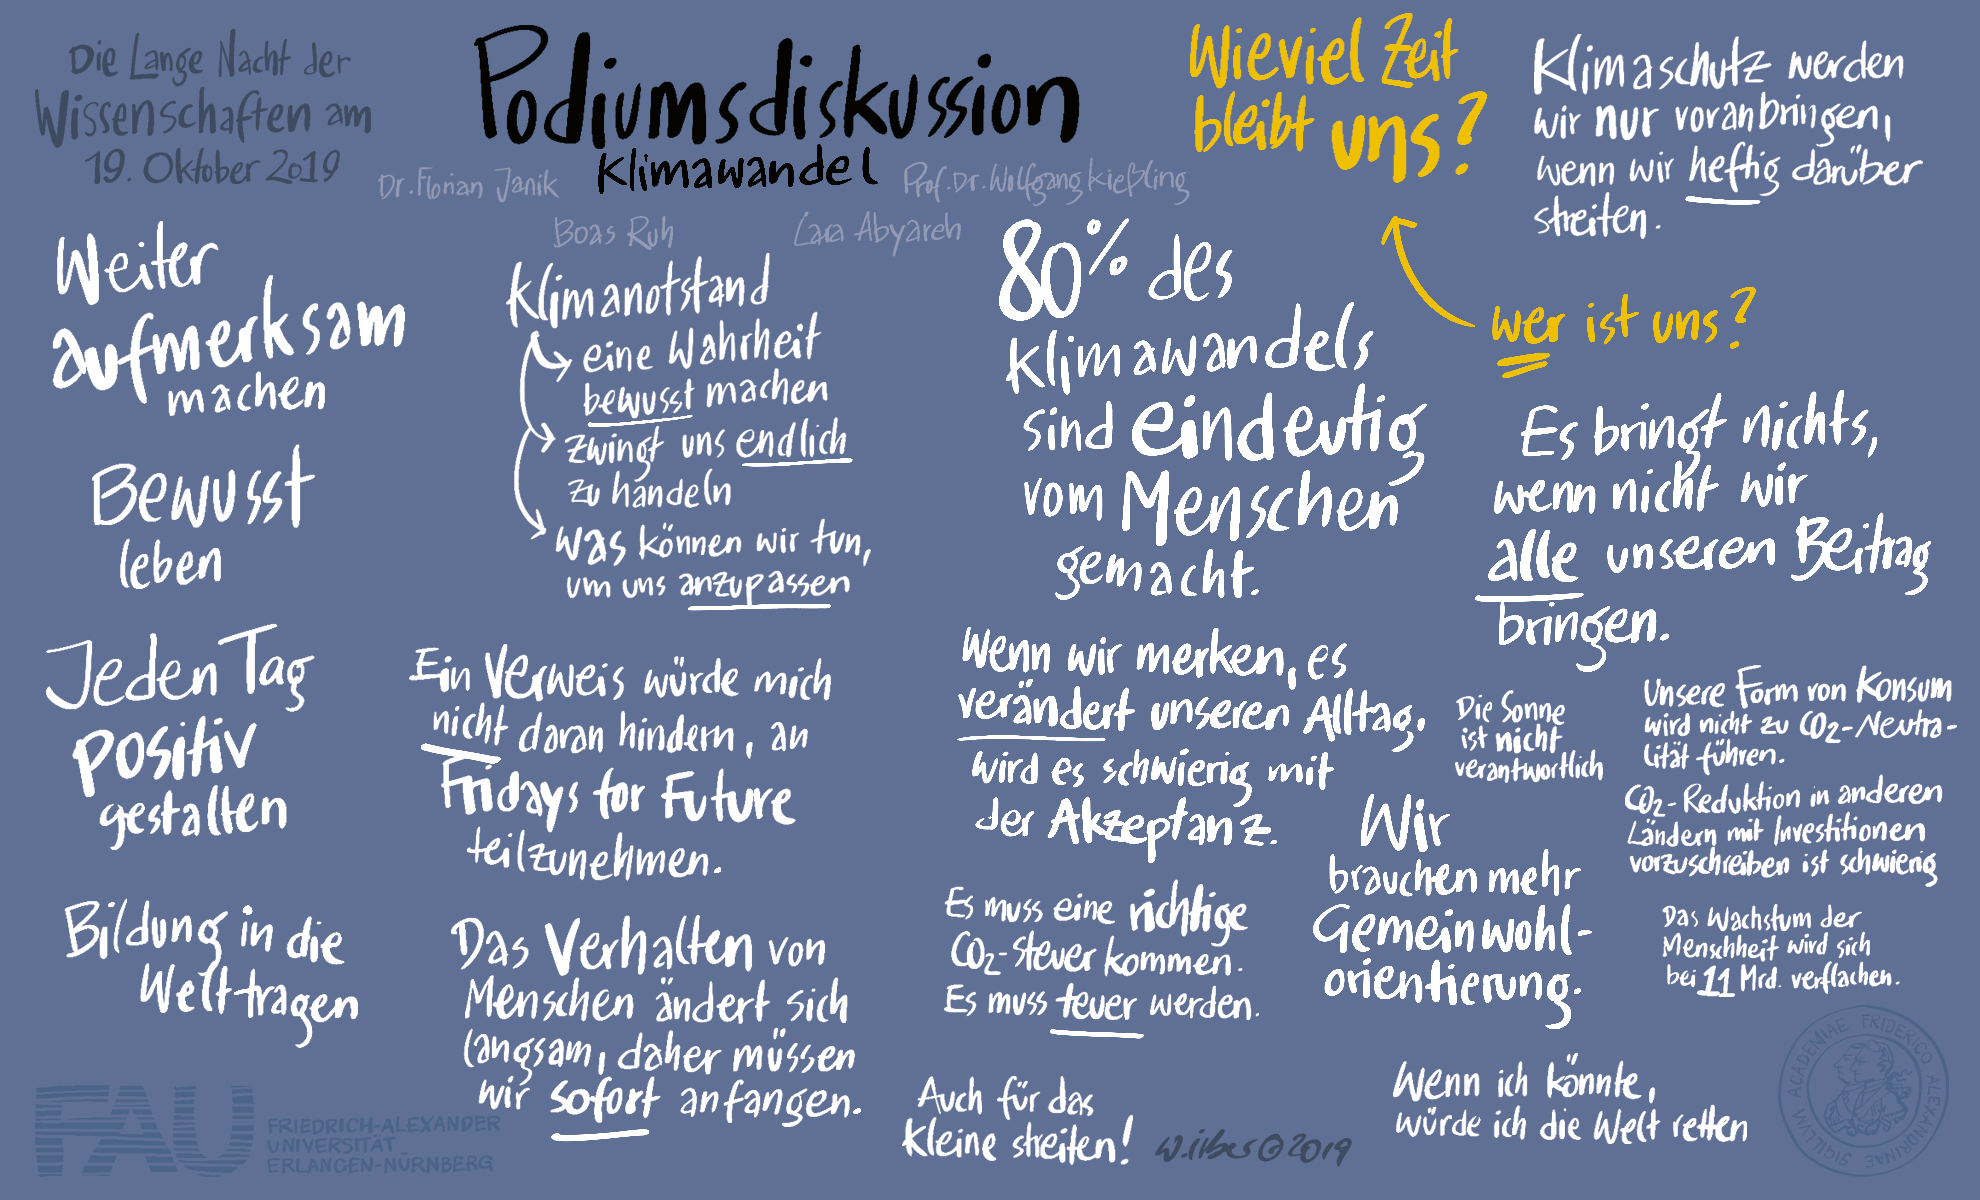 Die Lange Nacht der
Wissenschaften am
19. Oktober 2019
Podiumsdiskussion
Klimawandel
Dr. Florian Janik
Prof. Dr. Wolfgang Kießling
Boas Ruh
Lara Abyareh
Wieviel Zeit
bleibt uns?
wer ist uns?
Klimaschutz werden
wir nur voranbringen,
wenn wir heftig darüber
streiten.
Weiter
aufmerksam
machen
Bewusst
leben
Jeden Tag
positiv
gestalten
Bildung in die
Welt tragen
Klimanotstand
eine Wahrheit
bewusst machen
zwingt uns endlich
zu handeln
was können wir tun,
um uns anzupassen
Ein Verweis würde mich
nicht daran hindern, an
Fridays for Future
teilzunehmen.
Das Verhalten von
Menschen ändert sich
langsam, daher müssen
wir sofort anfangen.
80% des
Klimawandels
sind eindeutig
vom Menschen
gemacht.
Wenn wir merken, es
verändert unseren Alltag,
wird es schwierig mit
der Akzeptanz.
Es muss eine richtige
CO2-Steuer kommen.
Es muss teuer werden.
Auch für das
kleine streiten!
Es bringt nichts,
wenn nicht wir
alle unseren Beitrag
bringen.
Die Sonne
ist nicht
verantwortlich
Unsere Form von Konsum
wird nicht zu CO2-Neutra-
lität führen.
CO2-Reduktion in anderen
Ländern mit Investitionen
vorzuschreiben ist schwierig
Wir
brauchen mehr
Gemeinwohl-
orientierung.
Das Wachstum der
Menschheit wird sich
bei 11 Mrd. verflachen.
Wenn ich könnte,
würde ich die Welt retten
W.ilber©2019
FAU
FRIEDRICH-ALEXANDER
UNIVERSITÄT
ERLANGEN-NÜRNBERG
SIGILLVM ACADEMIAE FRIDERICO ALEXANDRINAE